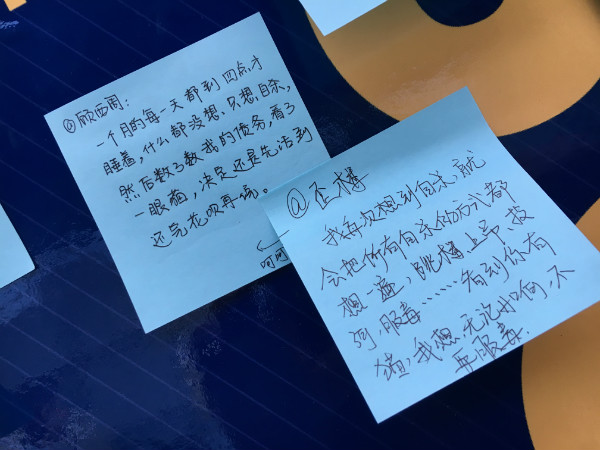 @顾西周：
一个月的每一天都到四点才
睡着，什么都没想，只想自杀，
然后数了数我的债务，看了
一眼猫，决定还是先活到
还完花呗再离。
呵呵
@歪楼
我每次想到自杀，就
会把所有自杀的方式都
想一遍，跳楼上吊、投
河服毒……看到你有
猫，我想无论如何，不
要服毒.